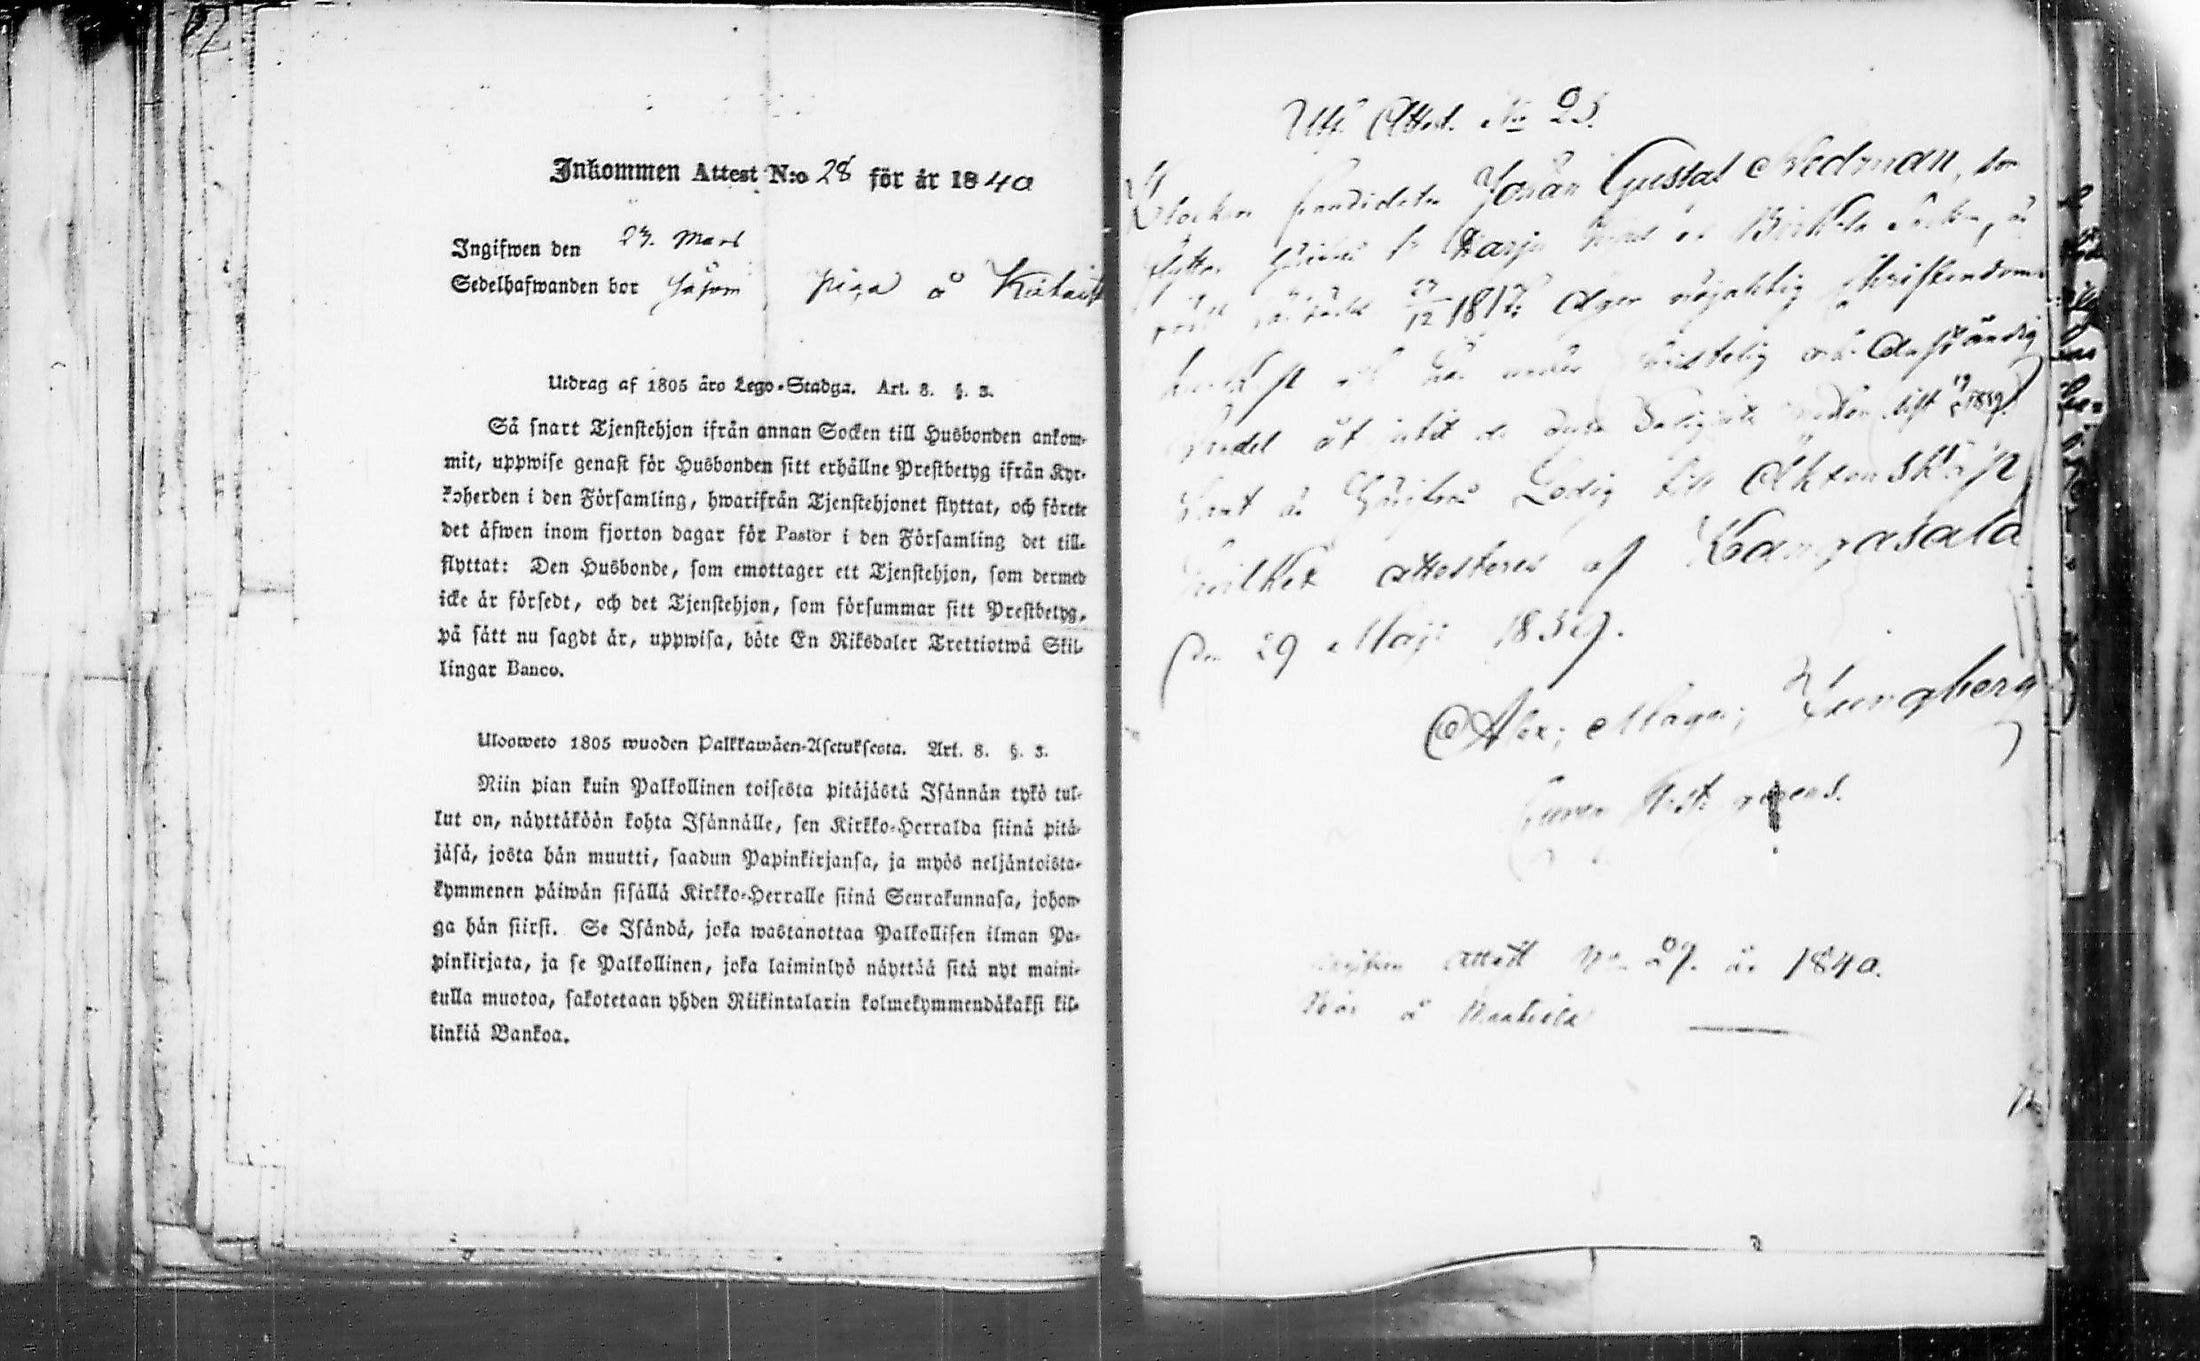 Inkommen Attest N:o 28 för år 1840
Ingifwen den 23. Mars
Sedelhafwanden bor såsom piga å
Utdrag af 1805 åro Lego-Stadga. Art. 8. §. 3.
Så snart Tjenstehjon ifrån annan Socken till Husbonden ankom-
mit, uppwise genast för Husbonden sitt erhållne Prestbetyg ifrån Kyr-
koherden i den Församling, hwarifrån Tjenstehjonet flyttat, och förete
det äfwen inom fjorton dagar för Pastor i den Församling det till-
flyttat: Den Husbonde, som emottager ett Tjenstehjon, som dermed
icke är försedt, och det Tjenstehjon, som försummar sitt Prestbetyg,
på sätt nu sagdt är, uppwisa, böte En Riksdaler Trettiotwå Skil-
lingar Banco.
Ulosweto 1805 wuoden Palkkawäen-Asetuksesta. Art. 8. §. 3.
Niin pian kuin Palkollinen toisesta pitäjästä Isännän tykö tul-
lut on, näyttäköön kohta Isännälle, sen Kirkko-Herralda siinä pitä-
jäsä, josta hän muutti, saadun Papinkirjansa, ja myös neljäntoista-
kymmenen päiwän sisällä Kirkko-Herralle siinä Seurakunnasa, johon-
ga hän siirsi. Se Isändä, joka wastanottaa Palkollisen ilman Pa-
pinkirjata, ja se Palkollinen, joka laiminlyö näyttää sitä nyt maini-
tulla muotoa, sakotetaan yhden Riikintalarin kolmekymmendäkaksi kil-
linkiä Bankoa.
Utfl. Attest. No 25.
Klockare Candidaten Johan Gustaf Nedman, som
flyttar härifrån till Harju i Birkala Socken, är
född 1817, äger nöjaktig Christendoms
kunskap och har under christelig och Anständig
sedan sist 1839
samt är härifrån Ledig till Äktenskap
hvilket attesteres af Kangasala
den 29 Maji 1839.
Alex: Magn: Ljungberg
Attest No 29. år 1840.
Bor å